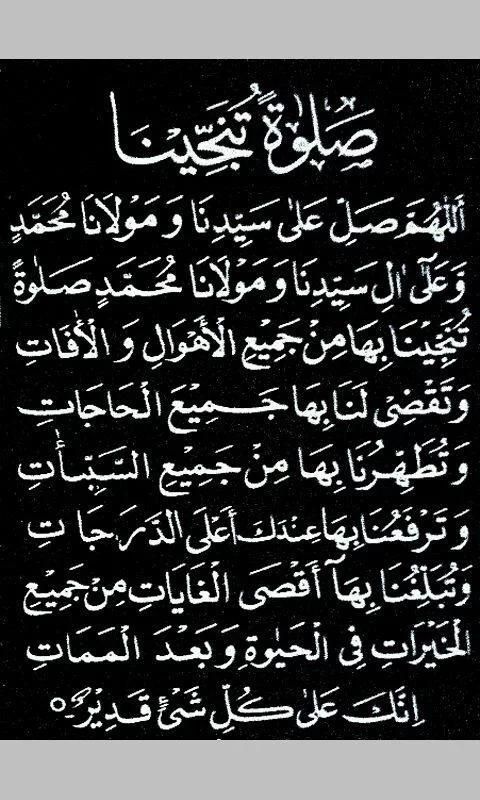 صَلٰوةً تُنَجِّيْنَا
اَللّٰهُمَّ صَلِّ عَلٰى سَيِّدِنَا وَ مَوْلَانَا مُحَمَّدٍ
وَّعَلٰٓى اٰلِ سَيِّدِنَا وَ مَوْلَانَا مُحَمَّدٍ صَلٰوةً
تُنَجِّيْنَا بِهَا مِنْ جَمِيْعِ الْأَهْوَالِ وَ الْاٰفَاتِ
وَ تَقْضِىْ لَنَا بِهَا جَمِيْعَ الْحَاجَاتِ
وَ تُطَهِّرُنَا بِهَا مِنْ جَمِيْعِ السَّيِّاٰتِ
وَ تَرْفَعُنَا بِهَا عِنْدَكَ أَعْلَى الدَّرَجَاتِ
وَ تُبَلِّغُنَا بِهَآ أَقْصَى الْغَايَاتِ مِنْ جَمِيْعِ
الْخَيْرَاتِ فِى الْحَيٰوةِ وَ بَعْدَ الْمَمَاتِ
اِنَّكَ عَلٰى كُلِّ شَىْءٍ قَدِيْرٌ ○